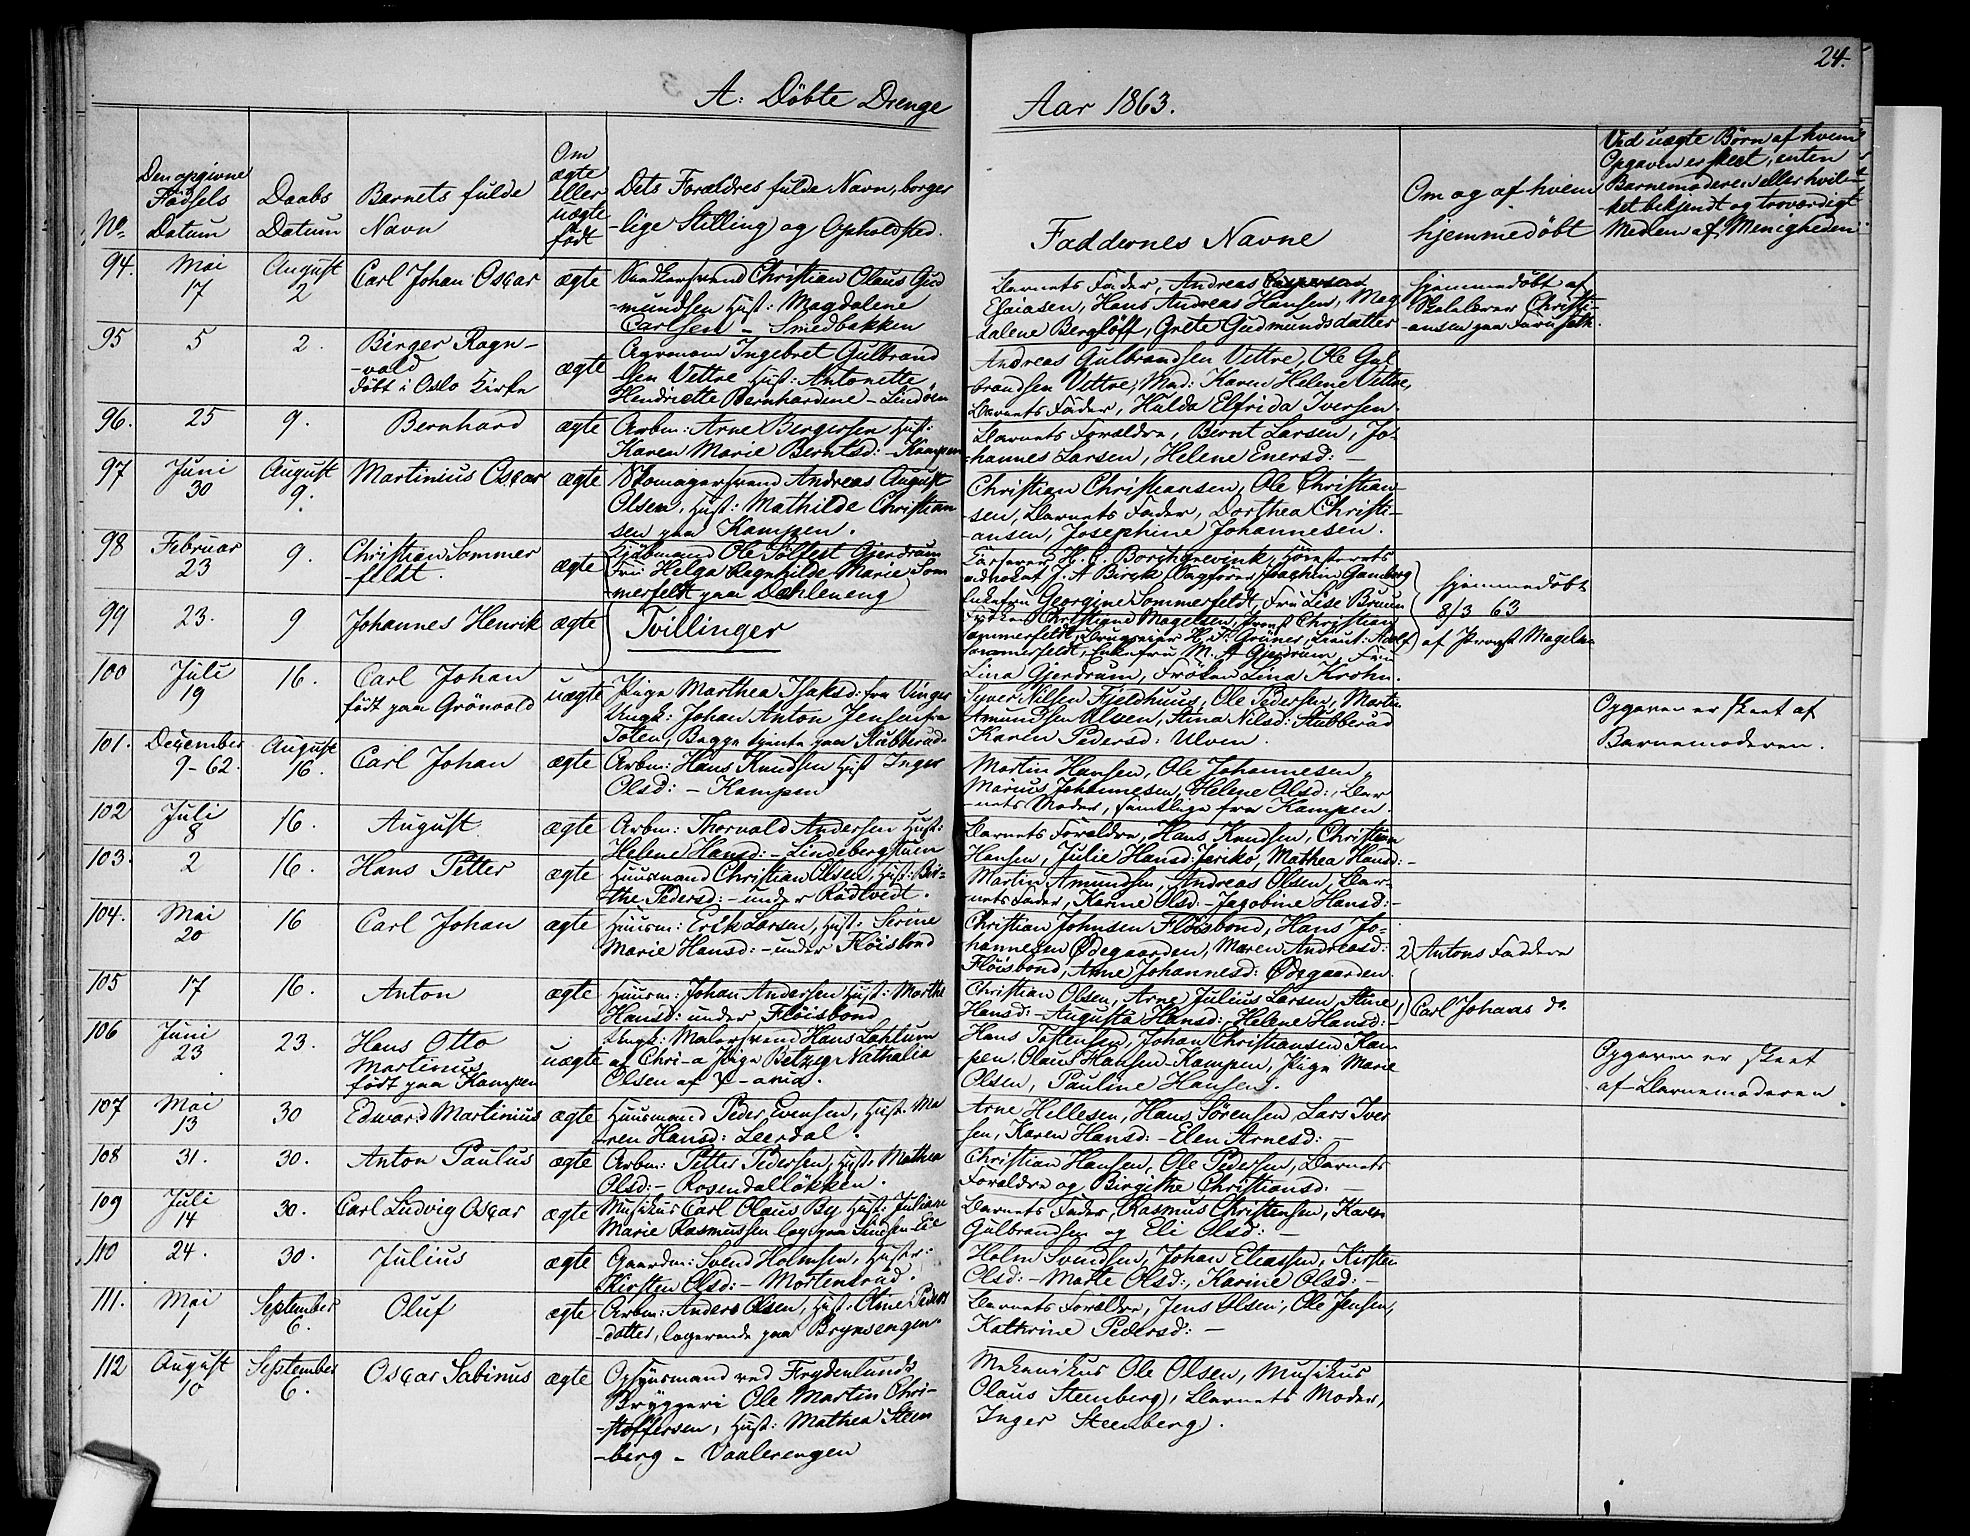 24.
A: Döbte Drenge Aar 1863.
No.
Den opgivne Fødsels Datum
Daabs Datum
Barnets fulde Navn
Om ægte eller uægte født
Dets Forældres fulde Navn, borger-
-lige Stilling og Opholdsted.
Faddernes Navne
Om og af hvem hjemmedöbt
Ved uægte Børn af hvem
Opgaven er skeet, enten
Barnemoderen eller hvil-
-ket bekjendt og troværdigt
Medlem af Menigheden
94. Mai 17 August 2 Carl Johan Oscar ægte Snedkersvend Christian Olaus Gud
-mundsen Hust: Magdalene
Carlsen - Smedbakken
Barnets Fader, Andreas
Esaiasen, Hans Andreas Hansen, Mag
dalene Berglöff, Grete Gudmundsdatter
Hjemmedöbt af
Skolelærer Christi-
-ansen paa Furuseth.
95 5 2. Birger Ragn-
-vald
døbt i Oslo Kirke
ægte Agronom Ingebret Gulbrand
sen Vettre Hust: Antonette
Henriette Bernhardine - Lindöen
Andreas Gulbrandsen Vettre, Ole Gul
brandsen Vettre, Mad: Karen Helene Vettre,
Barnets Fader, Hulda Elfrida Iversen.
96. 25 9. Bernhard ægte Arbm: Arne Bergersen Hust:
Karen Marie Berntsd: - Kampen
Barnets Forældre, Bernt Larsen, Jo-
hannes Larsen, Helene Enersd: -
97 Juni 30 August 9. Martinius Oscar ægte Skomagersvend Andreas August
Olsen, Hust: Mathilde Christian
sen paa Kampen.
Christian Christiansen, Ole Christian-
-sen, Barnets Fader, Dorthea Christi-
-ansen, Josephine Johannesen.
98 Februar 23 9. Christian Sommer
-feldt.
ægte Kjöbmand Ole Tollest Gjerdrum
Fru Helga Ragnhilde Marie Som
merfeldt paa Dæhleneng
H. C. Borchgrevink, Höiesterets
advokat J. A Birch Sagförer Joachim Gamborg
Enkefru Georgine Sommerfeldt, Fru Lise Bruun
Hjemmedöbt
8/3 63
af Provst Magelsen
99 23. 9 Johannes Henrik ægte Tvillinger
Fröken Christiane Magelsen, Provst Christian
Sommerfeldt, H. F. Grüner, Lieut: Adolf
Sommerfeldt, Enkefru M. A Gjerdrum, Frk
Lina Gjerdrum, Fröken Lina Krohn.
100 Juli 19 16. Carl Johan
født paa Grönvold
uægte Pige Marthea Isaksd: fra Vinger
Ungk: Johan Anton Jensen fra
Toten, Begge tjente paa Stubberud.
Syver Nilsen Fjeldhuus, Ole Pedersen, Martin
Amundsen Ulven, Stina Nilsd: Stubberud
Karen Pedersd: Ulven.
Opgaven er skeet af
Barnemoderen.
101. December 9-62. August 16. Carl Johan ægte Arbm: Hans Knudsen Hust Inger
Olsd: - Kampen
Martin Hansen, Ole Johannesen
Marius Johannesen, Helene Olsd:, Bar
-nets Moder, samtlige fra Kampen.
102 Juli 8 16. August ægte Arbm: Thorvald Andersen Hust:
Helene Hansd: - Lindebergstuen
Barnets Forældre, Hans Knudsen, Christian
Hansen, Julie Hansd: Jeriko, Mathea Hansd: -
103. 2 16. Hans Petter ægte Huusmand Christian Olsen, Hust: Bir-
the Pedersd: - under Rödtvedt.
Martin Amundsen, Andreas Olsen, Bar-
nets Fader, Karine Olsd: - Jagobine Hansd: -
104. Mai 20 16 Carl Johan ægte Huusm: Erik Larsen, Hust: Serine
Marie Hansd: - under Flöisbond
Christian Johnsen Flöisbond, Hans Jo-
hannesen Ødegaarden, Maren Andreasd:
Flöisbond, Arne Johannesd: Ødegaarden.
2) Antons Faddere
105 17 16. Anton ægte Huusm: Johan Andersen Hust: Marthe
Hansd: under Flöisbond
Christian Olsen, Arne Julius Larsen, Stine
Hansd: - Augusta Hansd:, Helene Hansd: -
1) Carl Johans do.
106 Juni 23 23. Hans Otto
Martinus
født paa Kampen
uægte Ungk: Malersvend Hans Lahlum
af Chri-a Pige Betzy Nathalia
Olsen af X-ania.
Hans Tostensen, Johan Christiansen Kam
-pen, Olaus Hansen Kampen, Pige Marie
Olsen, Pauline Hansen.
Opgaven er skeet
af Barnemoderen.
107 Mai 13 30 Edvard Martinius ægte Huusmand Peder Evensen, Hust: Ma
-ren Hansd: Leerdal.
Arne Hellesen, Hans Sörensen Lars Iver
sen, Karen Hansd: - Elen Arnesd: -
108 31. 30. Anton Paulus ægte Arbm: Petter Pedersen, Hust: Mathea
Olsd: - Rosendalslökken.
Christian Hansen, Ole Pedersen, Barnets
Forældre og Birgithe Christiansd: -
109 Juli 14 30. Carl Ludvig Oscar ægte Musikus Carl Olaus By Hust: Juliane
Marie Rasmussen log: paa Sinsen Eie
Barnets Fader, Rasmus Christensen, Karen
Gulbrandsen og Eli Olsd: -
110 24. 30. Julius ægte Gaardm: Svend Holmsen, Hustr:
Kirsten Olsd: - Mortensrud.
Holm Svendsen, Johan Eliassen, Kirsten
Olsd: - Mathe Olsd:, Karine Olsd: -
111. Mai 1 September 6. Oluf ægte Arbm: Anders Olsen, Hust: Stine Peders
-datter, logerende paa Brynsengen.
Barnets Forældre, Jens Olsen, Ole Jensen,
Kathrine Pedersd: -
112 August 10 September 6. Oscar Sabinus ægte Opsynsmand ved Frydenlunds
Bryggeri Ole Martin Chri-
-stoffersen, Hust: Mathea Steen
-berg - Vaalerengen
Mekanikus Ole Olsen, Musikus
Olaus Steenberg, Barnets Moder,
Inger Steenberg.